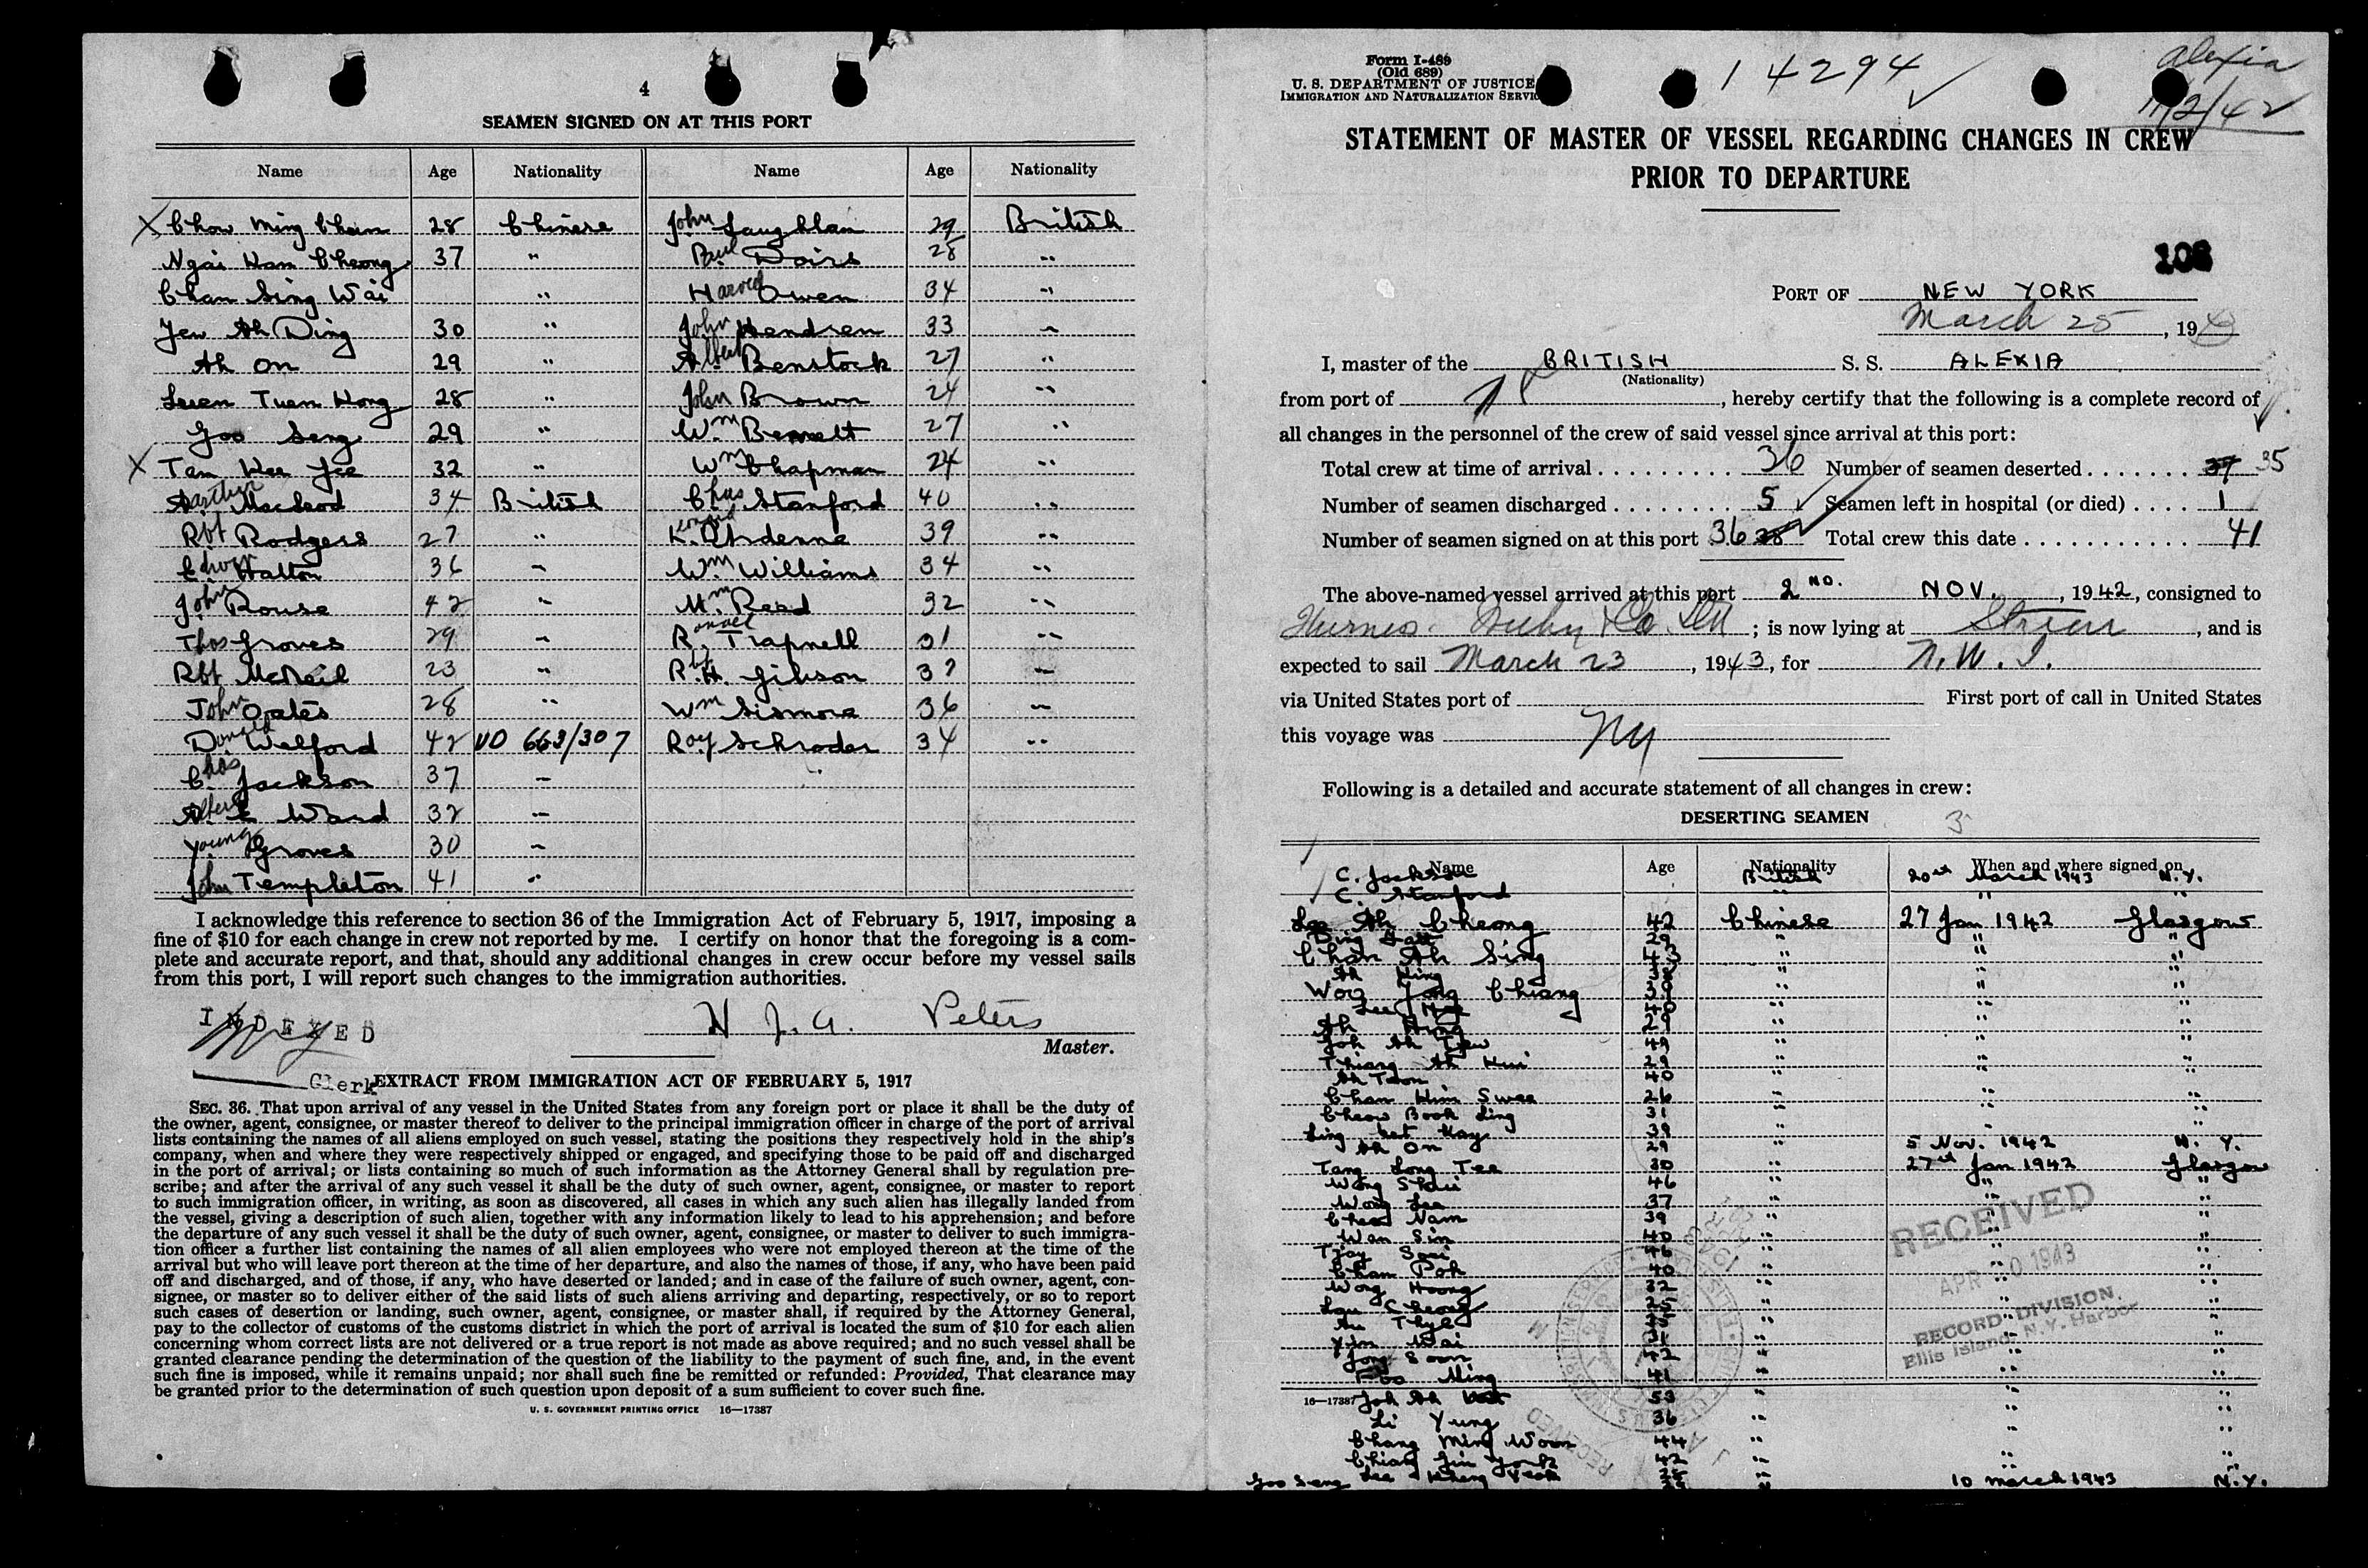 4
SEAMEN SIGNED ON AT THIS PORT
Name Age Nationality Name Age Nationality
X Chow Ming Chan 28 Chinese John Laughlan 29 British
Ngai Kam Cheong 37 " Paul Doirs 28 "
Chan Sing Wai " Harold Owen 34 "
Yew Ah Ding 30 " John Hendren 33 "
Ah On 29 " Albert Benstock 27 "
Leien Tuen Hong 28 " John Brown 24 "
Goo Seng 29 " Wm Bennett 27 "
X Tan Kee Jee 32 " Wm Chapman 24 "
Arthur MacLeod 34 British Chas Stanford 40 "
Rbt Rodgers 27 " K. 39 "
Edwon Halton 36 " Wm Williams 34 "
John Rouse 42 " Wm Read 32 "
Thos Groves 29 " Ronald Trapnell 31 "
Rbt McNeil 23 " Rbt H. Gibson 37 "
John Oates 28 " Wm Sismore 36 "
Donald Welford 42 VD 663/307 Roy Schroder 34 "
Chas Jackson 37 "
Albert E Ward 32 "
Young Groves 30 "
John Templeton 41 "
I acknowledge this reference to section 36 of the Immigration Act of February 5, 1917, imposing a
fine of $10 for each change in crew not reported by me. I certify on honor that the foregoing is a com-
plete and accurate report, and that, should any additional changes in crew occur before my vessel sails
from this port, I will report such changes to the immigration authorities.
INDEXED
H J. A. Peters
Master.
Clerk
EXTRACT FROM IMMIGRATION ACT OF FEBRUARY 5, 1917
SEC. 36. That upon arrival of any vessel in the United States from any foreign port or place it shall be the duty of
the owner, agent, consignee, or master thereof to deliver to the principal immigration officer in charge of the port of arrival
lists containing the names of all aliens employed on such vessel, stating the positions they respectively hold in the ship's
company, when and where they were respectively shipped or engaged, and specifying those to be paid off and discharged
in the port of arrival; or lists containing so much of such information as the Attorney General shall by regulation pre-
scribe; and after the arrival of any such vessel it shall be the duty of such owner, agent, consignee, or master to report
to such immigration officer, in writing, as soon as discovered, all cases in which any such alien has illegally landed from
the vessel, giving a description of such alien, together with any information likely to lead to his apprehension; and before
the departure of any such vessel it shall be the duty of such owner, agent, consignee, or master to deliver to such immigra-
tion officer a further list containing the names of all alien employees who were not employed thereon at the time of the
arrival but who will leave port thereon at the time of her departure, and also the names of those, if any, who have been paid
off and discharged, and of those, if any, who have deserted or landed; and in case of the failure of such owner, agent, con-
signee, or master so to deliver either of the said lists of such aliens arriving and departing, respectively, or so to report
such cases of desertion or landing, such owner, agent, consignee, or master shall, if required by the Attorney General,
pay to the collector of customs of the customs district in which the port of arrival is located the sum of $10 for each alien
concerning whom correct lists are not delivered or a true report is not made as above required; and no such vessel shall be
granted clearance pending the determination of the question of the liability to the payment of such fine, and, in the event
such fine is imposed, while it remains unpaid; nor shall such fine be remitted or refunded: Provided, That clearance may
be granted prior to the determination of such question upon deposit of a sum sufficient to cover such fine.
U. S. GOVERNMENT PRINTING OFFICE 16—17387
Form I-489
(Old 689)
U. S. DEPARTMENT OF JUSTICE
IMMIGRATION AND NATURALIZATION SERVICE
14294
Alexia
11/2/42
STATEMENT OF MASTER OF VESSEL REGARDING CHANGES IN CREW
PRIOR TO DEPARTURE
108
PORT OF NEW YORK
March 25, 19
I, master of the BRITISH S. S. ALEXIA
(Nationality)
from port of , hereby certify that the following is a complete record of
all changes in the personnel of the crew of said vessel since arrival at this port:
Total crew at time of arrival 36 Number of seamen deserted 37 35
Number of seamen discharged 5 Seamen left in hospital (or died) 1
Number of seamen signed on at this port 36 28 Total crew this date 41
The above-named vessel arrived at this port 2ND. NOV., 1942, consigned to
Furness Withy & Co Ltd; is now lying at Stream, and is
expected to sail March 23, 1943, for N. W. I.
via United States port of First port of call in United States
this voyage was NY
Following is a detailed and accurate statement of all changes in crew:
DESERTING SEAMEN 3
Name Age Nationality When and where signed on
C. Jackson British 20th March 1943 N.Y.
C. Stanford " "
Lee Ah Cheong 42 Chinese 27 Jan 1942 Glasgow
Ding 29 " " "
Chan Ah Sing 43 " " "
Ah King 38 " " "
Wong Chiang " " "
Lee 40 " " "
Ah Hing 29 " " "
Joh Ah Tjew 49 " " "
Thiang Ah Hui 29 " " "
Ah Toon 40 " " "
Chan Kim Swee 26 " " "
Cheow Book Ling 31 " " "
Ling Kay 39 " " "
Ah On 29 " 5 Nov. 1942 N. Y.
Tang Long Tee 30 " 27th Jan 1942 Glasgow
Wong 46 " " "
Wong Lee 37 " " "
Nam 39 " " "
Wan Sin 40 " " "
Tjay 46 " " "
Chan Poh 40 " " "
Wong Hoong 32 " " "
Lou Cheong 25 " " "
Au " " "
Wai 31 " " "
Jong Soon 42 " " "
Foo Ming 41 " " "
16—17387 Joh Ah 53 " " "
Li Yung 36 " " "
Chang Ming Woon 44 " " "
Chiang 42 " " "
Goo Seng Lee Kheng " 10 march 1943 N.Y.
RECEIVED
APR 10 1943
RECORD DIVISION
Ellis Island, N.Y. Harbor
RECEIVED